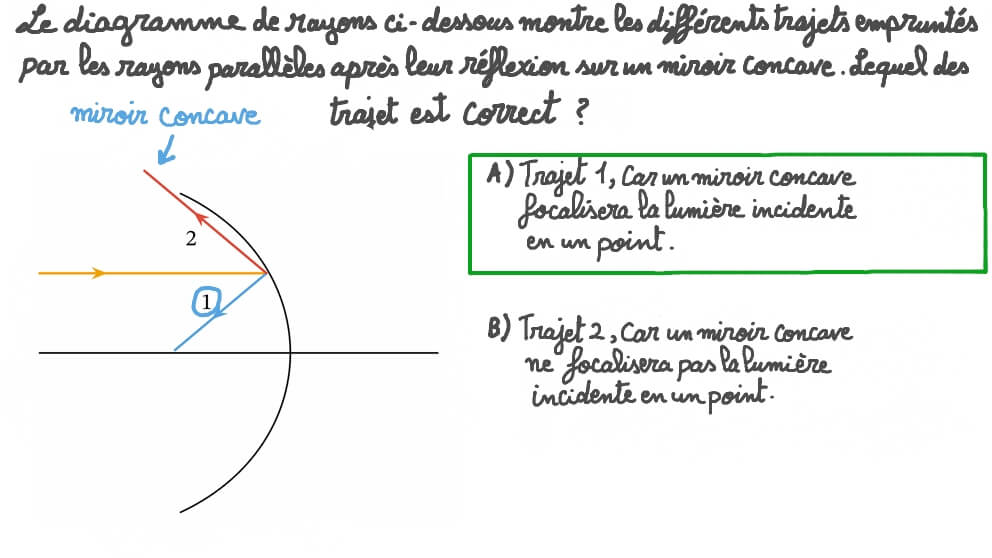 Le diagramme de rayons ci-dessous montre les différents trajets empruntés
par les rayons parallèles après leur réflexion sur un miroir concave. Lequel des
trajet est correct ?
miroir concave
2
1
A) Trajet 1, Car un miroir concave
focalisera la lumière incidente
en un point.
B) Trajet 2, Car un miroir concave
ne focalisera pas la lumière
incidente en un point.